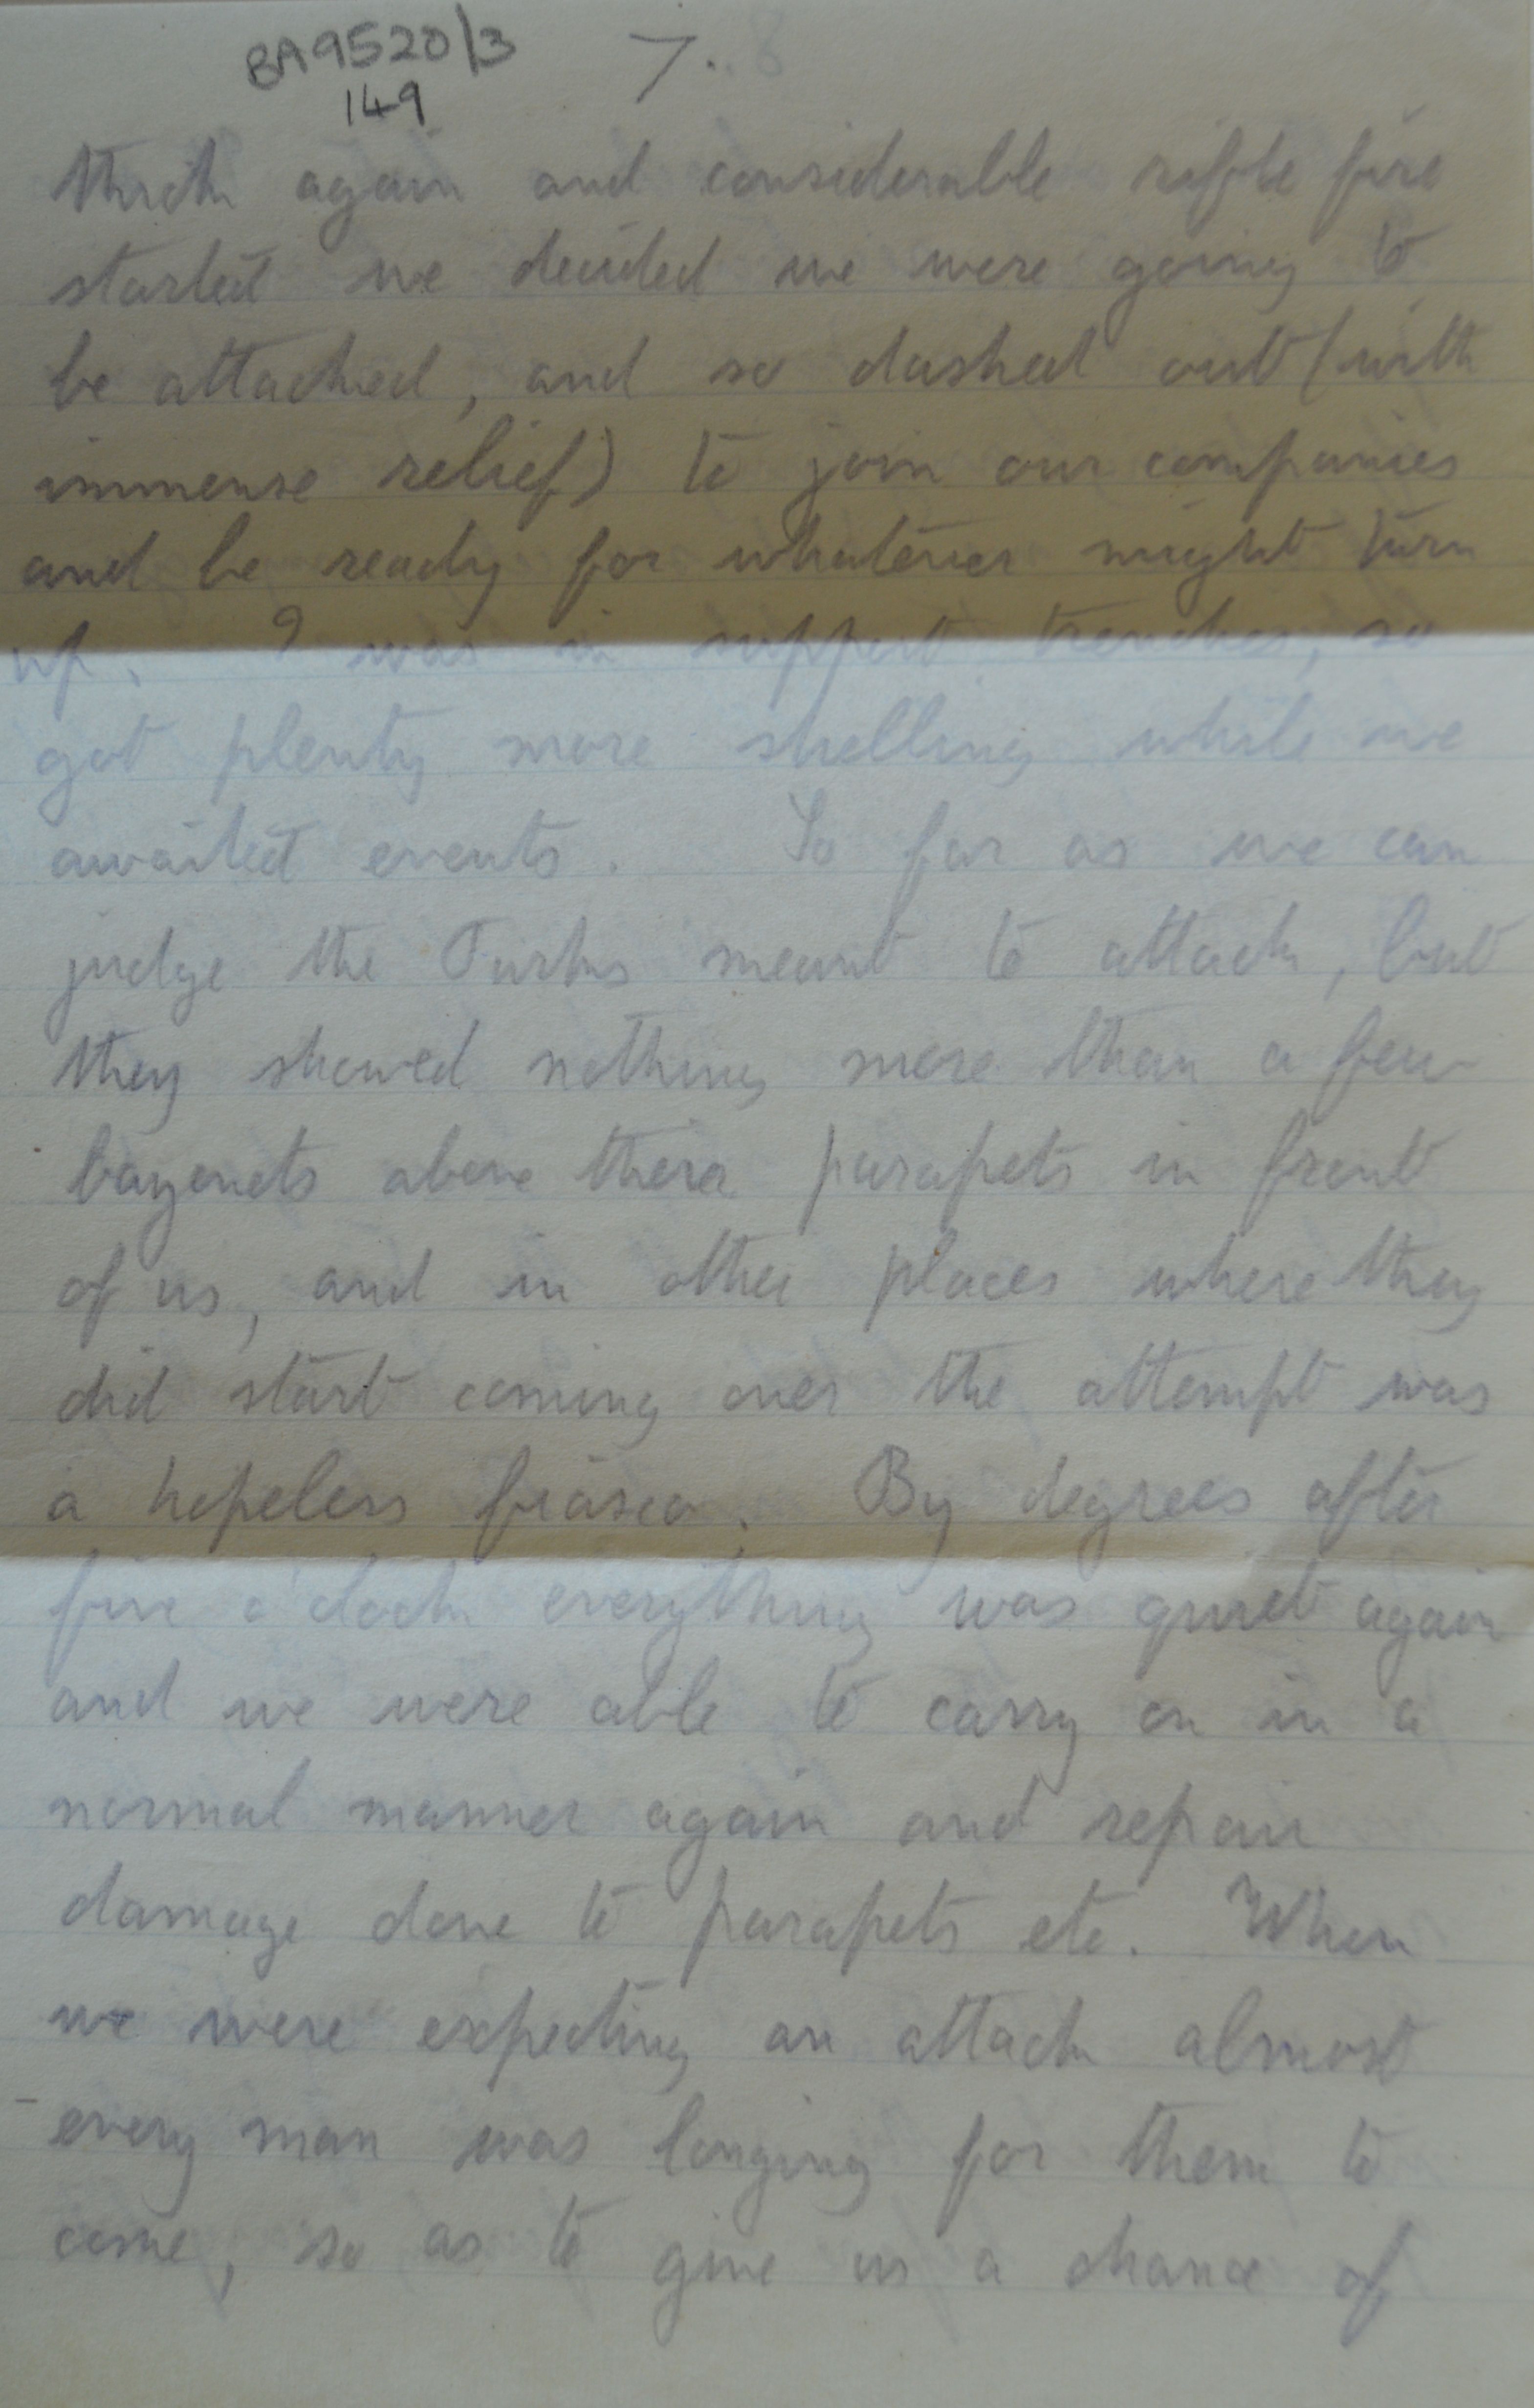 BA9520/3
149
7.
thick again and considerable rifle fire
started we decided we were going to
be attacked, and so dashed out (with
immense relief) to join our companies
and be ready for whatever might turn
up. I was in support trenches, so
got plenty more shelling while we
awaited events. So far as we can
judge the Turks meant to attack, but
they showed nothing more than a few
bayonets above there parapets in front
of us, and in other places where they
did start coming over the attempt was
a hopeless fiasco. By degrees after
five o'clock everything was quiet again
and we were able to carry on in a
normal manner again and repair
damage done to parapets etc. When
we were expecting an attack almost
every man was longing for them to
come, so as to give us a chance of